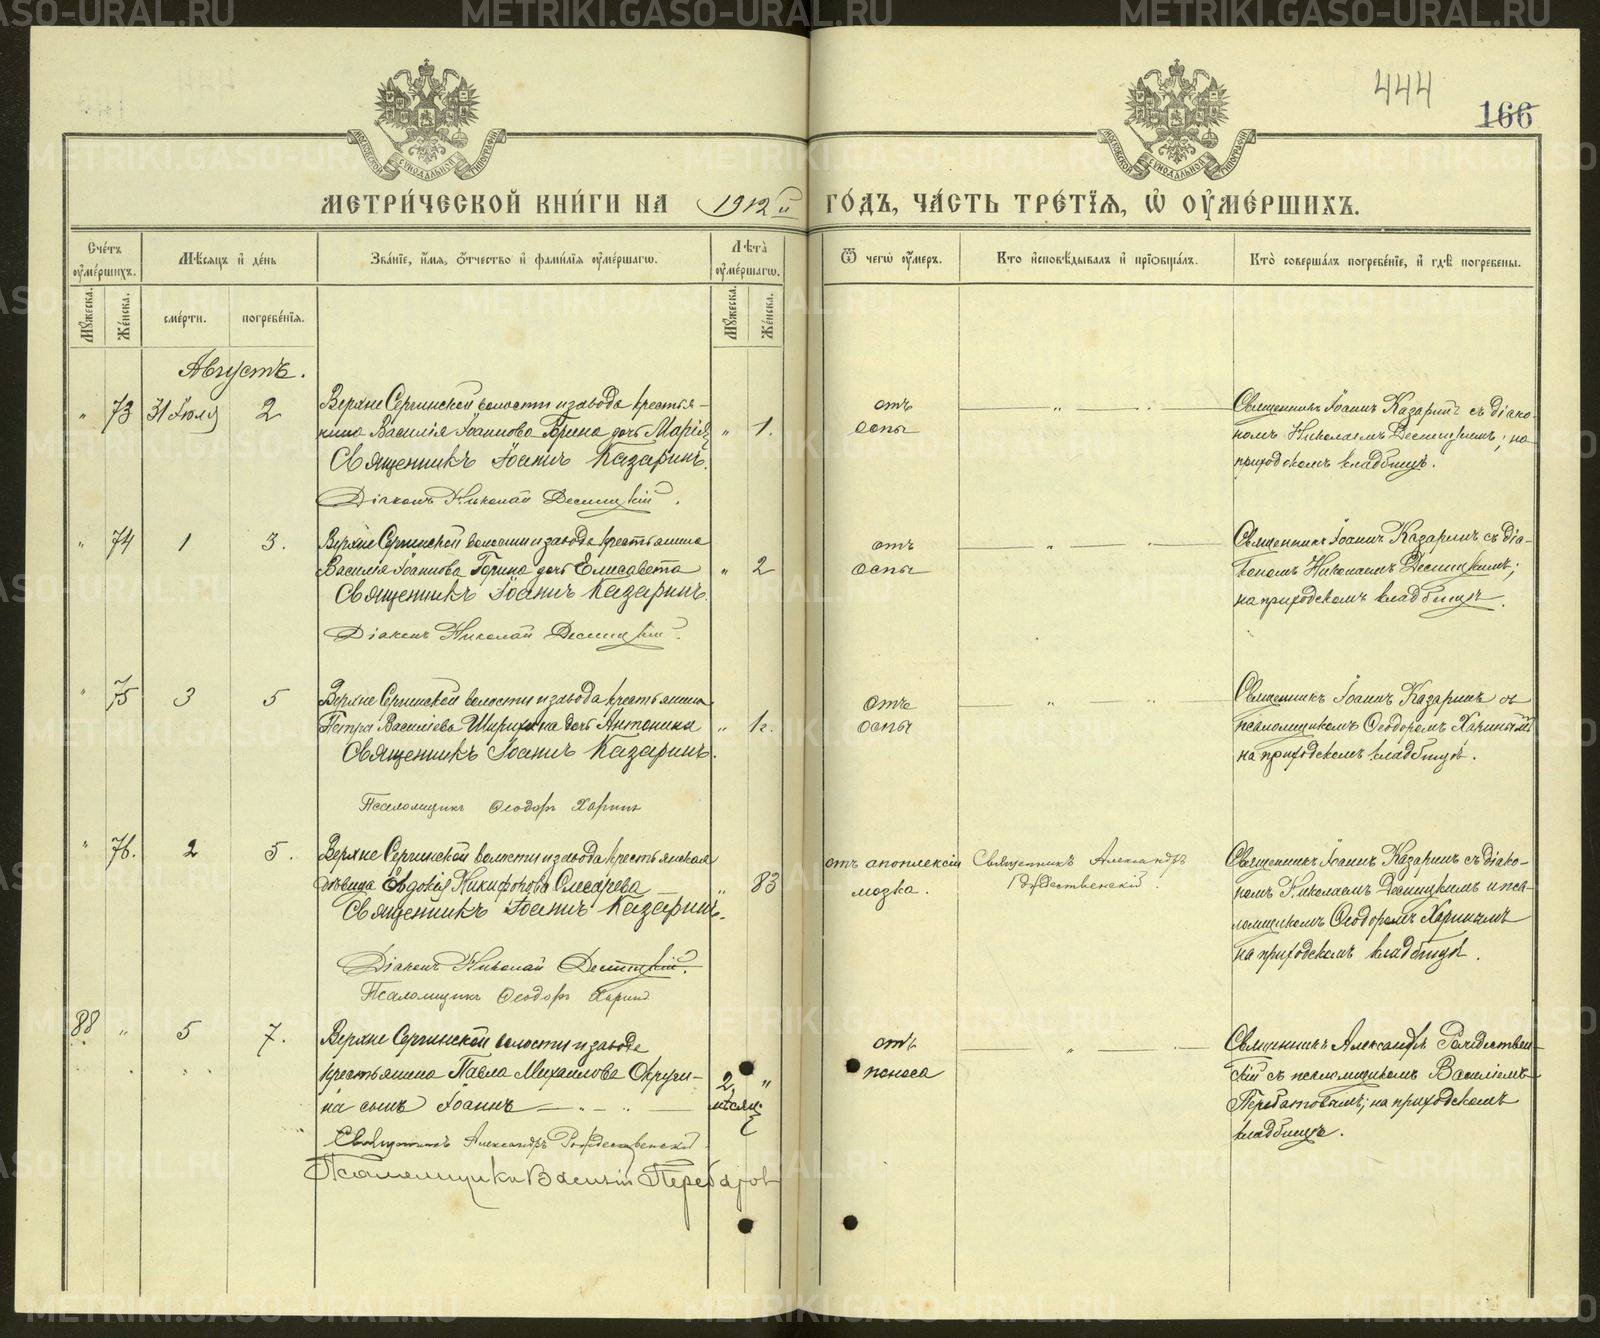 444
166
МЕТРИ́ЧЕСКОЙ КНИ́ГИ НА 1912й ГО́ДЪ, ЧА́СТЬ ТРЕ́ТІѦ, Ѡ҆ ОУ҆МЕ́РШИХЪ.
Сче́тъ оу҆ме́ршихъ.
Мѣ́сяцъ и҆ де́нь
Зва́нїе, и҆́мѧ, ѻ҆́тчество и҆ фами́лїѧ оу҆ме́ршагѡ.
Лѣта̀ оу҆ме́ршагѡ.
Ѿ чегѡ̀ оу҆́меръ.
Кто̀ и҆сповѣ́дывалъ и҆ прїѡбща́лъ.
Кто̀ соверша́лъ погребе́нїе, и҆ гдѣ̀ погребены.
Мꙋ́жеска.
Же́нска.
сме́рти.
погребе́нїѧ.
Мꙋ́жеска.
Же́нска.
Августъ.
" 73 31 Іюля 2 Верхне Сергинской волости и завода крестья-
нина Василія Іоаннова Горина дочь Марія " 1.
Священникъ Іоаннъ Казаринъ.
Діаконъ Николай Десницкій.
отъ
оспы
Священникъ Іоаннъ Казаринъ съ діако-
номъ Николаемъ Десницкимъ; на
приходскомъ кладбищѣ.
" 74 1 3. Верхне Сергинской волости и завода крестьянина
Василія Іоаннова Горина дочь Елисавета " 2
Священникъ Іоаннъ Казаринъ.
Діаконъ Николай Десницкій.
отъ
оспы
Священникъ Іоаннъ Казаринъ съ діа-
кономъ Николаемъ Десницкимъ;
на приходскомъ кладбищѣ.
" 75 3 5 Верхне Сергинской волости и завода крестьянина
Петра Васильева Ширихина дочь Антонина " 1г.
Священникъ Іоаннъ Казаринъ.
Псаломщикъ Ѳеодоръ Харинъ
отъ
оспы
Священникъ Іоаннъ Казаринъ съ
псаломщикомъ Ѳеодоромъ Харинымъ
на приходскомъ кладбищѣ.
" 76. 2 5. Верхне Сергинской волости и завода крестьянская
дѣвица Евдокія Никифорова " 83
Священникъ Іоаннъ Казаринъ.
Діаконъ Николай Десницкій.
Псаломщикъ Ѳеодоръ Харинъ
отъ апоплексіи
мозга.
Священникъ Александръ
Рождественскій.
Священникъ Іоаннъ Казаринъ съ діако-
номъ Николаемъ Десницкимъ и пса-
ломщикомъ Ѳеодоромъ Харинымъ
на приходскомъ кладбищѣ.
88 " 5 7. Верхне Сергинской волости и завода
крестьянина Павла Михаилова Округи-
на сынъ Іоаннъ
2 мѣсяц. "
Священникъ Александръ Рождественскій
Псаломщикъ Василій Перебатов
отъ
поноса
Священникъ Александръ Рождествен-
скій съ псаломщикомъ Василіемъ
Перебатовымъ; на приходскомъ
кладбищѣ.
METRIKI.GASO-URAL.RU